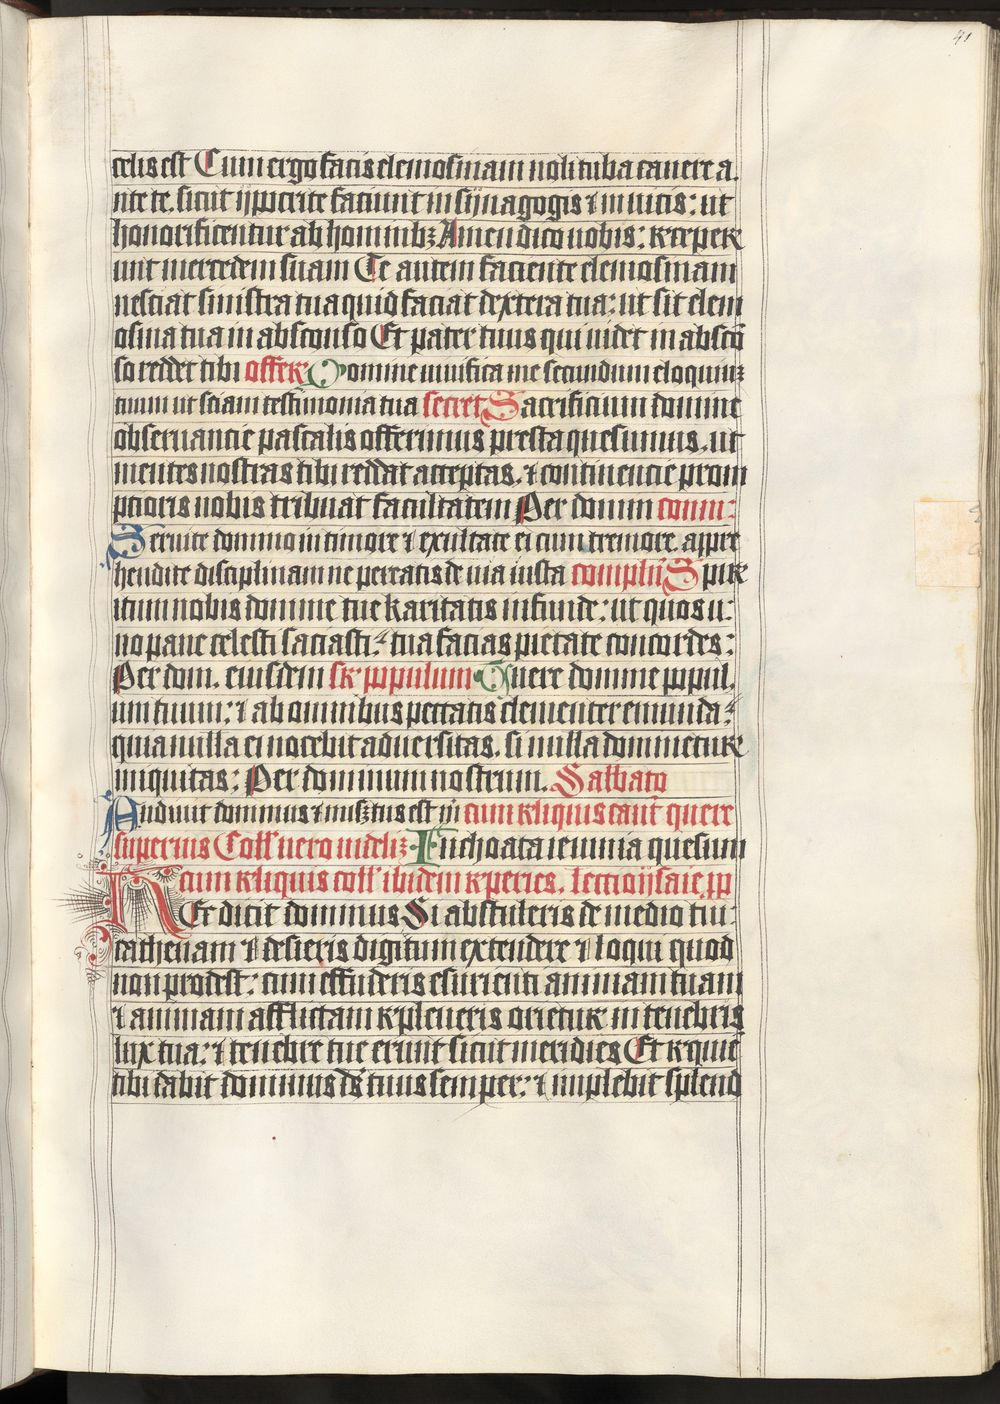 41
celis est Cum ergo facis elemosinam noli tuba canere a.
nte te. sicut ypocrite faciunt in synagogis ⁊ in uicis: ut
honorificentur ab hominibꝫ Amen dico uobis: receper
unt mercedem suam Te autem faciente elemosinam
nesciat sinistra tua quid faciat dextera tua: ut sit elem
osina tua in absconso Et pater tuus qui uidet in abscō
so reddet tibi offer Domine uiuifica me secundum eloquiuꝫ
tuum ut sciam testimonia tua secret Sacrificium domine
obseruancie pascalis offerimus presta quesumus. ut
mentes nostras tibi reddat acceptas. ⁊ continencie prom
pcioris nobis tribuat facultatem Per domin comu:
Seruite domino in timore ⁊ exultate ei cum tremore. appre
hendite disciplinam ne pereatis de uia iusta complēn Spir
itum nobis domine tue karitatis infunde: ut quos u:
no pane celesti saciasti: tua facias pietate concordes:
Per dom. eiusdem sr̄ populum Tuere domine popul.
um tuum: ⁊ ab omnibus peccatis clementer emunda:
quia nulla ei nocebit aduersitas. si nulla dominetur
iniquitas: Per dominum nostrum. Sabbato
Audiuit dominus ⁊ misꝫtus est m̄ cum reliquis canꝫ quere
superius Coll' uero uidelꝫ Inchoata ieiunia quesum
cum reliquis coll' ibidem reperies. lectio ysaie. pp
Hec dicit dominus Si abstuleris de medio tui:
cathenam ⁊ desieris digitum extendere ⁊ loqui quod
non prodest: cum effuderis esurienti animam tuam
⁊ animam afflictam repleueris orietur in tenebris
lux tua: ⁊ tenebre tue erunt sicut meridies Et requiē
tibi dabit dominus ds̄ tuus semper: ⁊ implebit splend